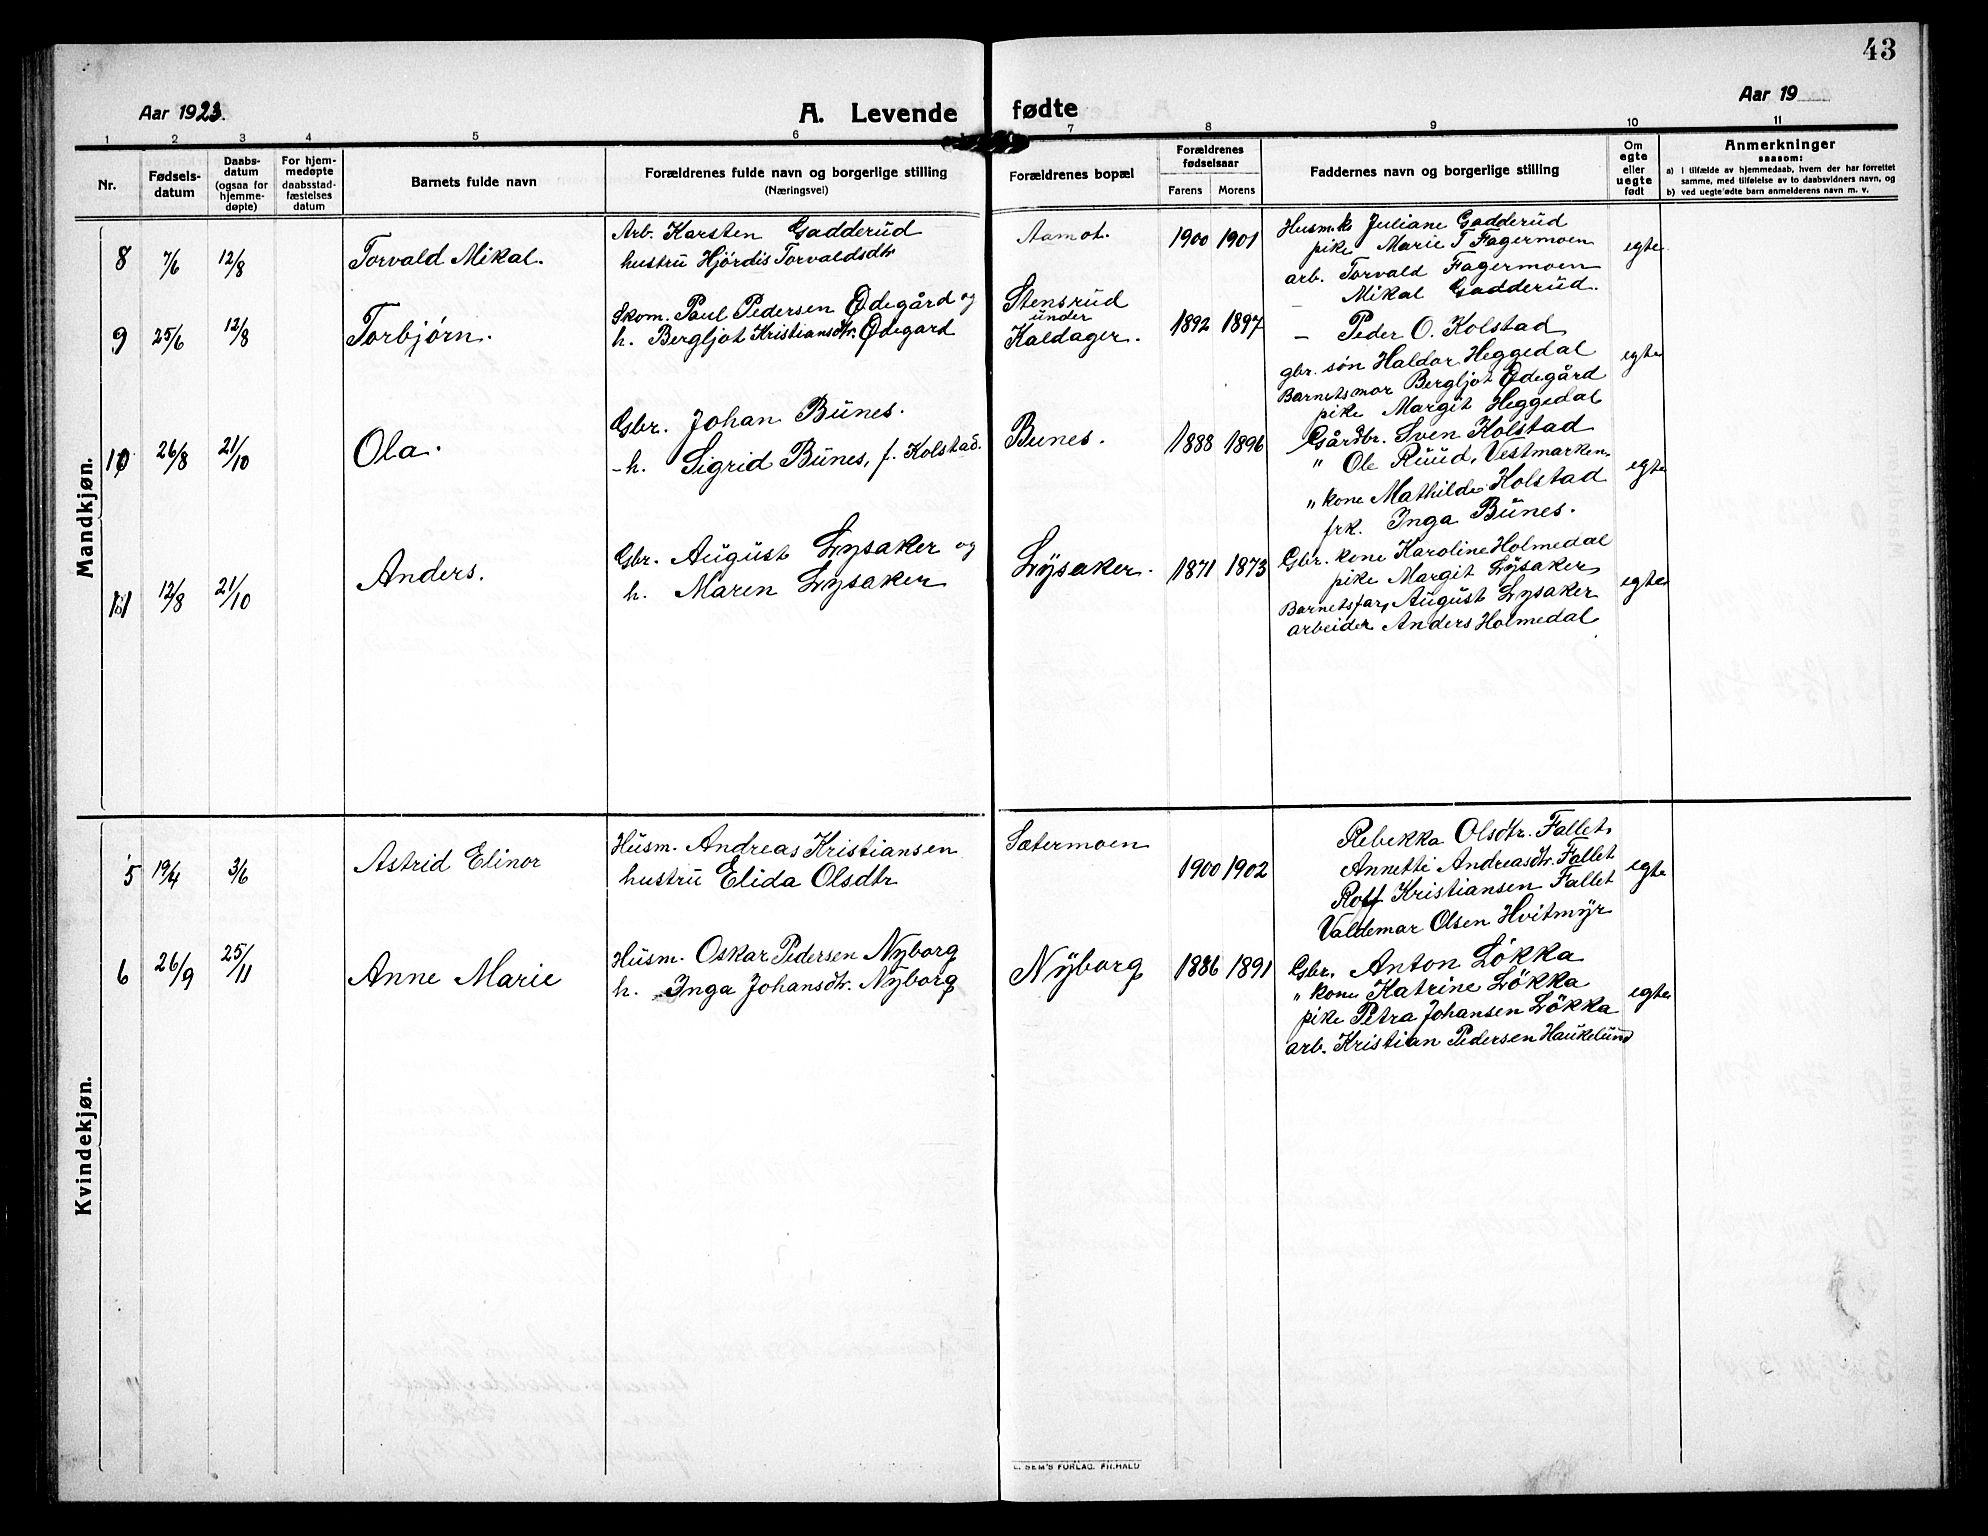 43
Aar 1923.
A. Levende fødte
Aar 19
1 2 3 4 5 6 7 8 9 10 11
Nr.
Fødsels-
datum
Daabs-
datum
(ogsaa for
hjemme-
døpte)
For hjem-
medøpte
daabsstad-
fæstelses
datum
Barnets fulde navn
Forældrenes fulde navn og borgerlige stilling
(Næringsvei)
Forældrenes bopæl
Forældrenes
fødselsaar
Farens Morens
Faddernes navn og borgerlige stilling
Om
egte
eller
uegte
født
Anmerkninger
saasom:
a) i tilfælde av hjemmedaab, hvem der har forrettet
samme, med tilføielse av to daabsvidners navn, og
b) ved uegte fødte barn anmelderens navn m. v.
Mandkjøn.
8 7/6 12/8 Torvald Mikal.
Arb. Karsten Gadderud
hustru Hjördis Torvaldsdtr
Aamot. 1900 1901
Husmk Juliane Gadderud
pike Marie T Fagermoen
arb. Torvald Fagermoen
— Mikal Gadderud.
egte
9 25/6 12/8 Torbjørn.
Skom. Paul Pedersen Ødegård og
h. Bergljot Kristiansdtr. Ødegard
Stensrud
under
Kaldager. 1892 1897
— Peder O. Kolstad
gbr. søn Haldor Heggedal
Barnetsmor Bergljot Ødegård
pike Margit Heggedal
egte
10 26/8 21/10 Ola.
Gbr. Johan Bunes.
-h. Sigrid Bunes, f. Kolstad.
Bunes. 1888 1896
Gårdbr. Sven Kolstad
" Ole Ruud, Vestmarken.
" kone Mathilde Kolstad
frk. Inga Bunes.
egte
11 12/8 21/10 Anders.
Gbr. August Lysaker og
h. Maren Lysaker
Lysaker. 1871 1873
Gbr. kone Karoline Holmedal
pike Margit Lysaker
Barnetsfar, August Lysaker
arbeider Anders Holmedal
egte
Kvindekjøn.
5 19/4 3/6 Astrid Elinor
Husm. Andreas Kristiansen
hustru Elida Olsdtr
Sætermoen 1900 1902
Rebekka Olsdtr. Fallet
Annetti Andreasdtr. Fallet
Rolf Kristiansen Fallet
Valdemar Olsen Hvitmyr
egte
6 26/9 25/11 Anne Marie
Husm. Oskar Pedersen Nyborg
h. Inga Johansdtr. Nyborg
Nyborg 1886 1891
Gbr. Anton Lökka
" kone Katrine Lökka
pike Petra Johansen Lökka
arb. Kristian Pedersen Haukelund
egte
E. SEM'S FORLAG. FR.HALD